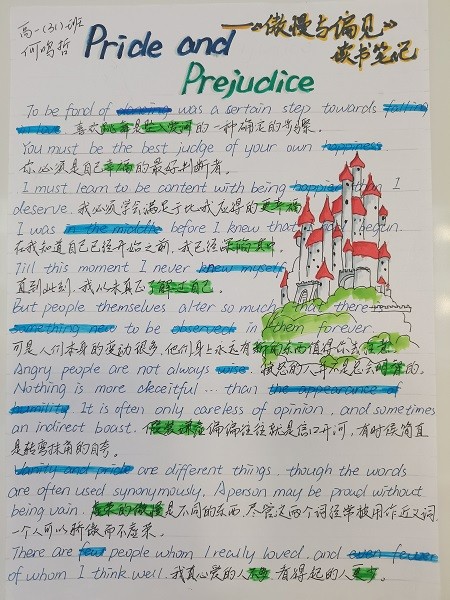 高一(31)班
何鸣哲
Pride and Prejudice
—《傲慢与偏见》
读书笔记
To be fond of dancing was a sertain step towards falling
in love. 喜欢跳舞是坠入爱河的一种确定的步骤。
You must be the best judge of your own happiness
你必须是自己幸福的最好判断者。
I must learn to be content with being happier than I
deserve. 我必须学会满足于比我应得的更幸福
I was in the middle before I knew that I had begun
在我知道自己已经开始之前,我已经深陷其中。
Till this moment I never knew myself
直到此刻,我从未真正了解过自己。
But people themselves alter so much, that there
something new to be observed in them forever.
可是人们本身的变动很多,他们身上永远有新的东西值得你去注意
Angry people are not always wise. 愤怒的人不总是明智的。
Nothing is more deceitful … than the appearance of
humility. It is often only careless of opinion, and sometimes
an indirect boast. 偏偏往往就是信口开河,有时候简直
是转弯抹角的自夸。
Vanity and pride are different things, though the words
are often used synonymously. A person may be proud without
being vain. 虚荣的傲慢是不同的东西,尽管这两个词经常被用作近义词
一个人可以骄傲而不虚荣。
There are few people whom I really loved, and even fewer
of whom I think well. 我真心爱的人不多 看得起的人更少。